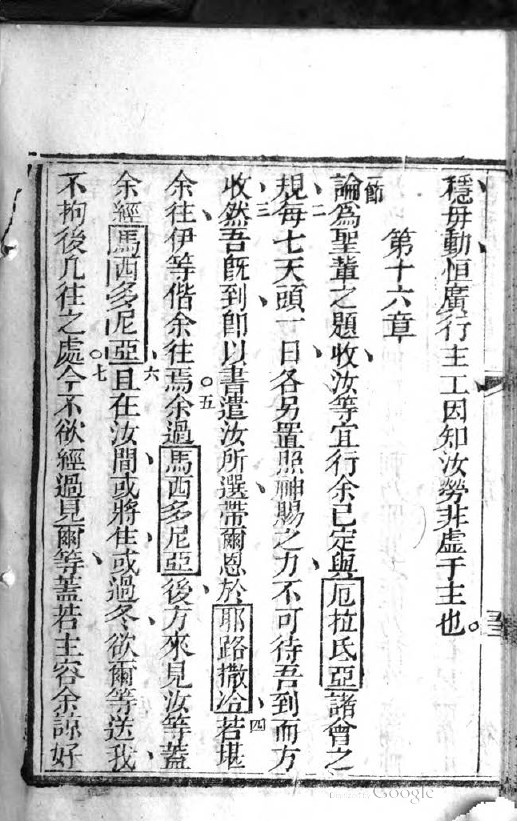 穩毋動恒廣行主工因知汝勞非虛于主也。
第十六章
一節論為聖軰之題收汝等宜行余已定與厄拉氏亞諸會之
規二每七天頭一日各另置照神賜之力不可待吾到而方
收三然吾既到即以書遣汝所選帶爾恩於耶路撒冷四若堪
余往伊等偕余往焉。五余過馬西多尼亞後方來見汝等蓋
余經馬西多尼亞六且在汝間或將住或過冬欲爾等送我
不拘後凡往之處。七今不欲經過見爾等蓋若主容余諒好
Google